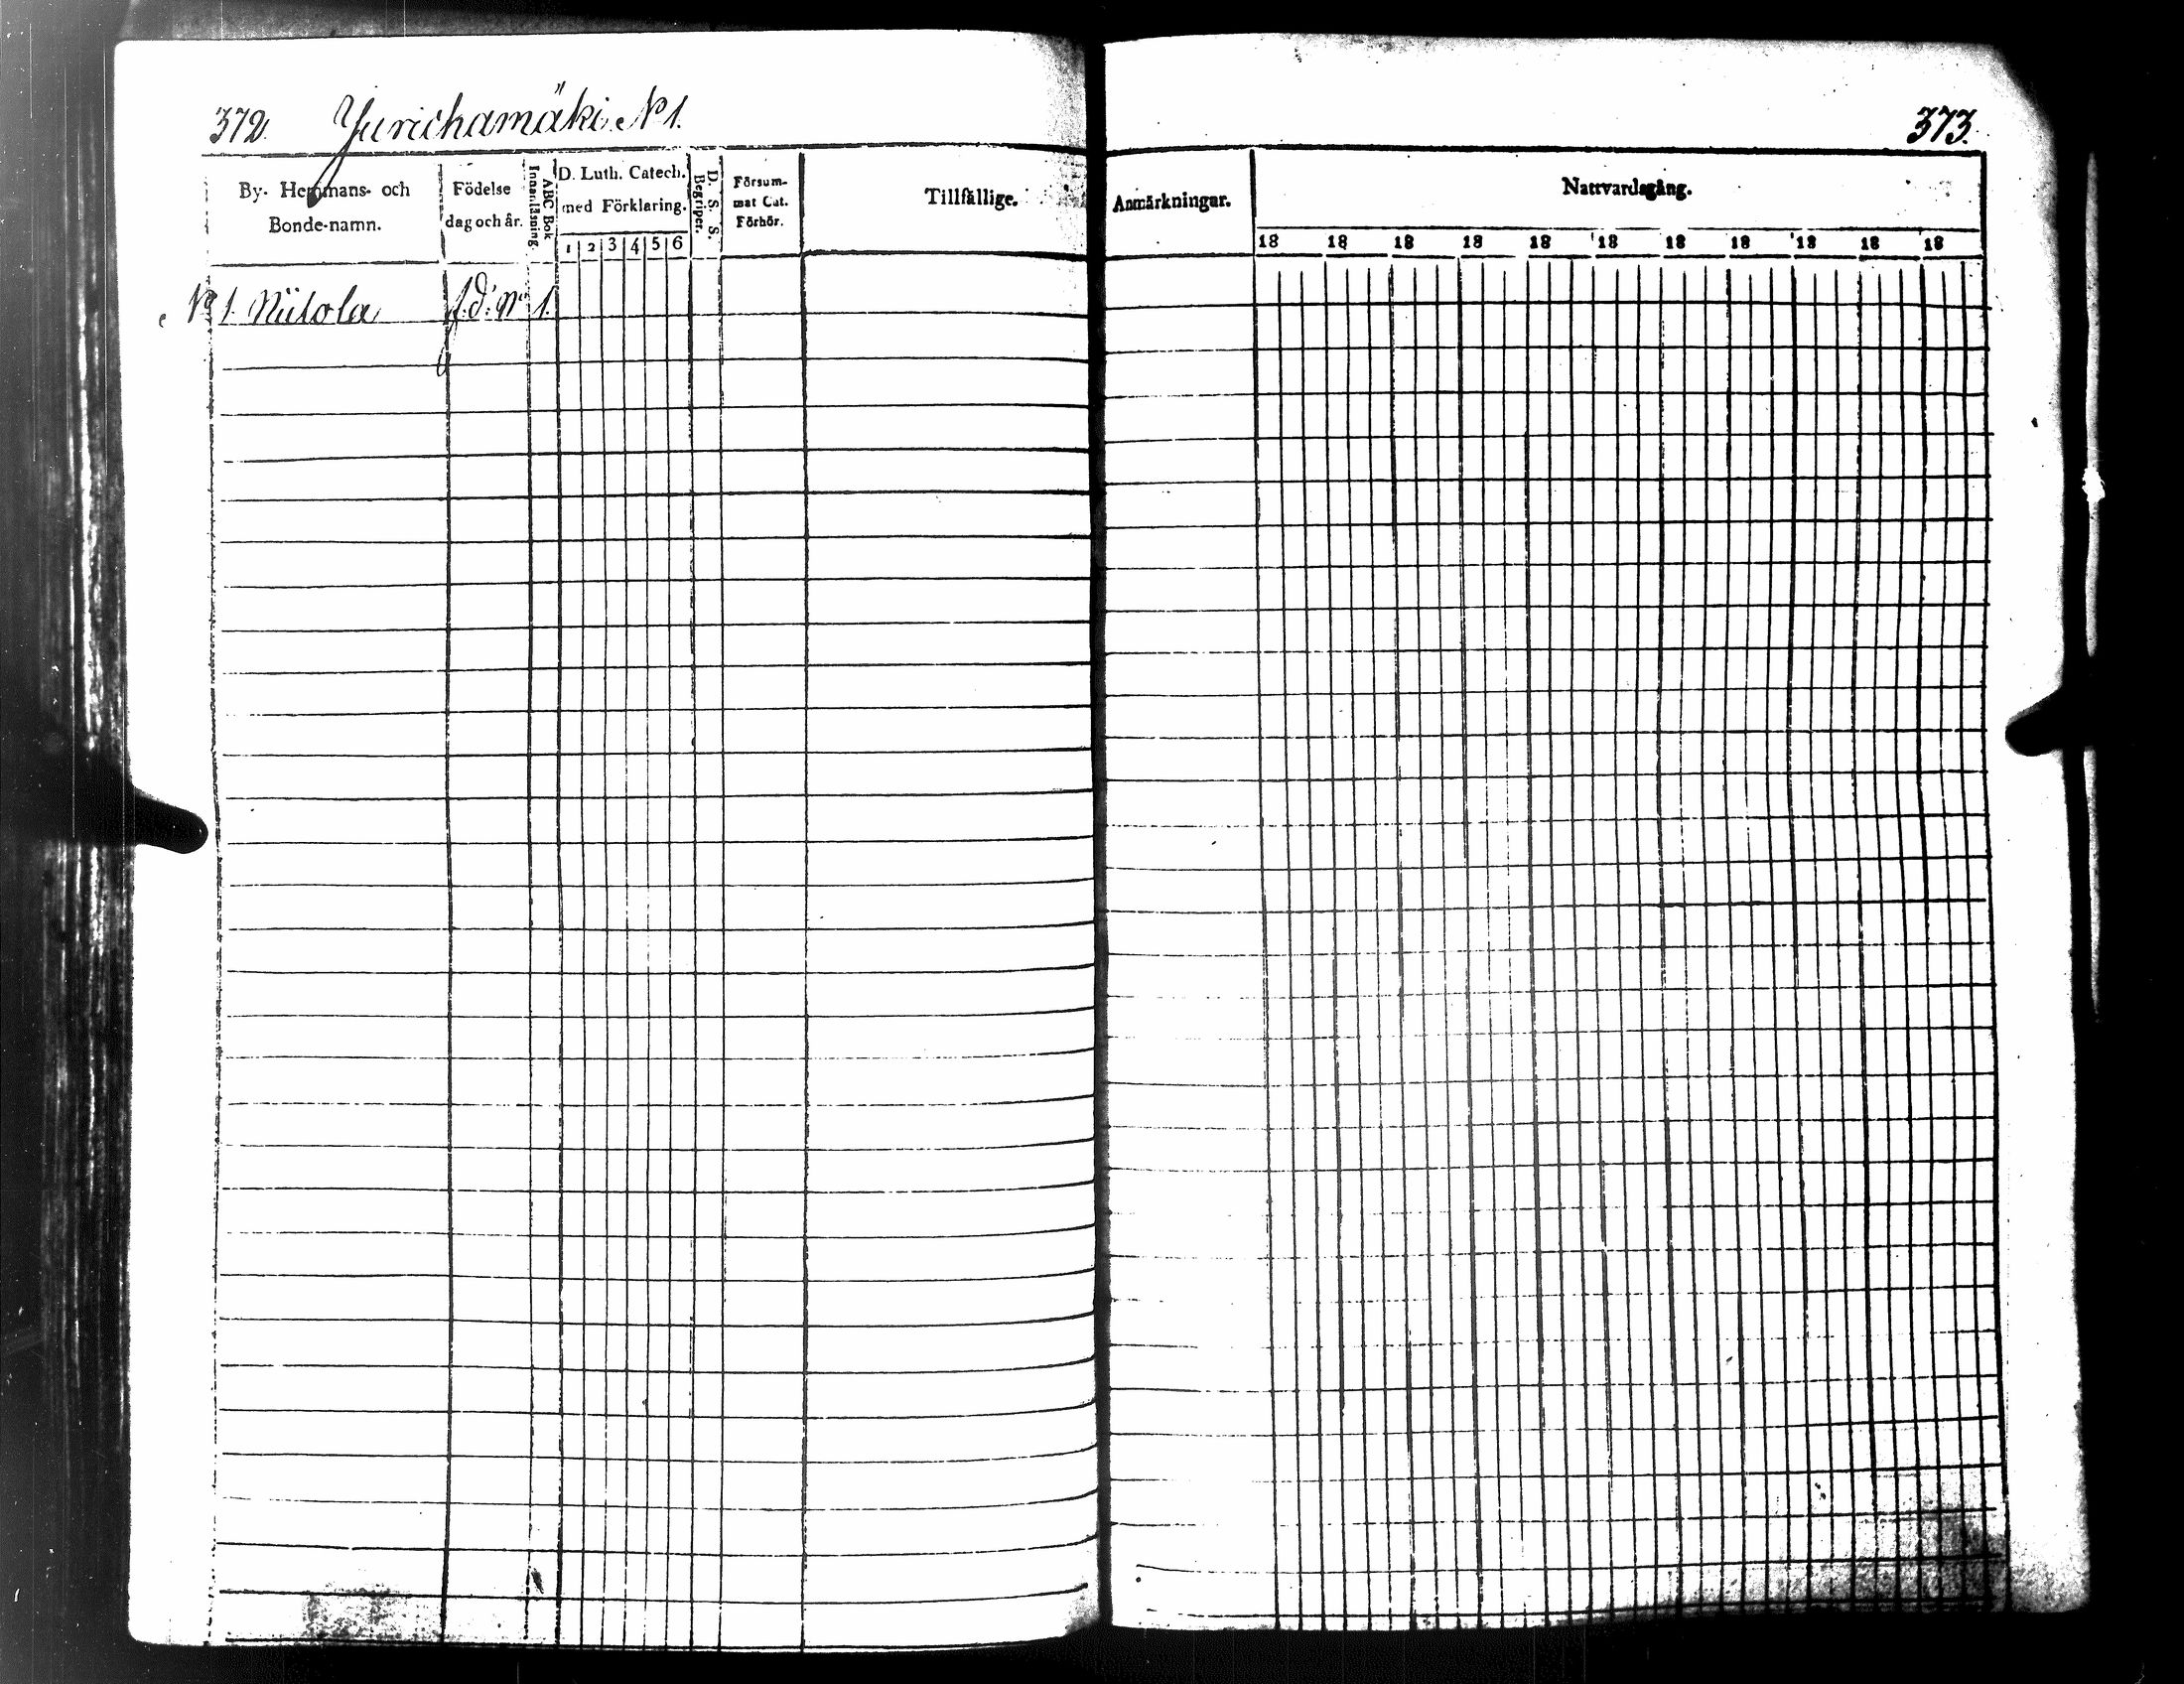 372. Yurichamäki N:o 1.
373.
By- Hemmans- och
Bonde-namn.
Födelse
dag och år.
ABC Bok
Innanläsning.
D. Luth. Catech.
med Förklaring.
1 2 3 4 5 6
D. S. S.
Begriper.
Försum-
mat Cat.
Förhör.
Tillfällige.
Anmärkningar.
Nattvardsgång.
18 18 18 18 18 18 18 18 18 18 18
N:o 1. Niitola f.d: N:o 1.